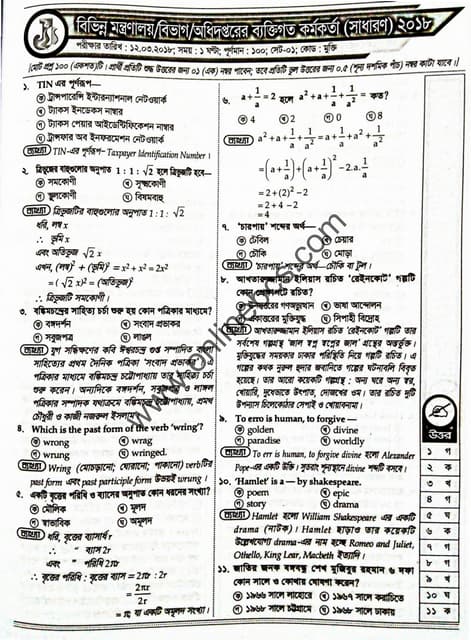 বিভিন্ন মন্ত্রণালয়/বিভাগ/অধিদপ্তরের ব্যক্তিগত কর্মকর্তা (সাধারণ) ২০১৮
পরীক্ষার তারিখ : ১২.০৩.২০১৮; সময় : ১ ঘণ্টা; পূর্ণমান : ১০০; সেট-০১; কোড : মুক্তি
[মোট প্রশ্ন ১০০ (একশত)টি। প্রার্থী প্রতিটি শুদ্ধ উত্তরের জন্য ০১ (এক) নম্বর পাবেন; তবে প্রতিটি ভুল উত্তরের জন্য ০.৫ (শূন্য দশমিক পাঁচ) নম্বর কাটা যাবে।]
১. TIN এর পূর্ণরূপ–
ক ট্রান্সপারেন্সি ইন্টারন্যাশনাল নেটওয়ার্ক
খ ট্যাকস ইনডেকস নাম্বার
গ ট্যাকস পেয়ার আইডেন্টিফিকেশন নাম্বার
ঘ ট্রান্সফার অব ইনফরমেশন নেটওয়ার্ক
ব্যাখ্যা TIN-এর পূর্ণরূপ– Taxpayer Identification Number।
২. ত্রিভুজের বাহুগুলোর অনুপাত 1 : 1 : √2 হলে ত্রিভুজটি হবে–
ক সমকোণী খ সূক্ষ্মকোণী
গ স্থূলকোণী ঘ বিষমবাহু
ব্যাখ্যা ত্রিভুজটির বাহুগুলোর অনুপাত 1 : 1 : √2
ধরি, লম্ব x
∴ ভূমি x
এবং অতিভুজ √2 x
এখন, (লম্ব)² + (ভূমি)² = x² + x² = 2x²
= (√2 x)² = (অতিভুজ)²
∴ ত্রিভুজটি সমকোণী।
৩. বঙ্কিমচন্দ্রের সাহিত্য চর্চা শুরু হয় কোন পত্রিকার মাধ্যমে?
ক বঙ্গদর্শন খ সংবাদ প্রভাকর
গ সবুজপত্র ঘ লাঙল
ব্যাখ্যা যুগ সন্ধিক্ষণের কবি ঈশ্বরচন্দ্র গুপ্ত সম্পাদিত বাংলা
সাহিত্যের প্রথম দৈনিক পত্রিকা 'সংবাদ প্রভাকর'
পত্রিকার মাধ্যমে বঙ্কিমচন্দ্র চট্টোপাধ্যায় তার সাহিত্য চর্চা
শুরু করেন। অন্যদিকে বঙ্গদর্শন, সবুজপত্র ও লাঙ্গল
পত্রিকার সম্পাদক যথাক্রমে বঙ্কিমচন্দ্র চট্টোপাধ্যায়, প্রমথ
চৌধুরী ও কাজী নজরুল ইসলাম।
8. Which is the past form of the verb 'wring'?
ক wrong খ wrag
গ wrung ঘ wringed.
ব্যাখ্যা Wring (মোচড়ানো; ঘোরানো; পাকানো) verbটির
past form এবং past participle form উভয়ই wrung।
৫. একটি বৃত্তের পরিধি ও ব্যাসের অনুপাত কোন ধরনের সংখ্যা?
ক মৌলিক খ মূলদ
গ স্বাভাবিক ঘ অমূলদ
ব্যাখ্যা ধরি, বৃত্তের ব্যাসার্ধ r
∴ " ব্যাস 2r
এবং " পরিধি 2πr
∴ বৃত্তের পরিধি : বৃত্তের ব্যাস = 2πr : 2r
= 2πr
2r
= π; যা একটি অমূলদ সংখ্যা।
৬. a + 1/a = 2 হলে a² + a + 1/a + 1/a² = কত?
ক 4 খ 2 গ 0 ঘ 8
ব্যাখ্যা a² + a + 1/a + 1/a² = a + 1/a + a² + 1/a²
= (a + 1/a) + (a + 1/a)² – 2.a.1/a
= 2 + (2)² – 2
= 2 + 4 – 2
= 4
৭. 'চারপায়' শব্দের অর্থ—
ক টেবিল খ চেয়ার
গ চৌকি ঘ মোড়া
ব্যাখ্যা 'চারপায়' শব্দের অর্থ– চৌকি বা টুল।
৮. আখতারুজ্জামান ইলিয়াস রচিত 'রেইনকোট' গল্পটি
কোন প্রেক্ষাপটে রচিত?
ক উনসত্তরের গণঅভ্যুত্থান খ ভাষা আন্দোলন
গ একাত্তরের মুক্তিযুদ্ধ ঘ সিপাহী বিদ্রোহ
ব্যাখ্যা আখতারুজ্জামান ইলিয়াস রচিত 'রেইনকোট' গল্পটি তার
সর্বশেষ গল্পগ্রন্থ 'জাল স্বপ্ন স্বপ্নের জাল' গ্রন্থের অন্তর্ভুক্ত।
মুক্তিযুদ্ধের সময়কার ঢাকার পরিস্থিতি নিয়ে গল্পটি রচিত। এ
গল্পের কথক নুরুল হুদার জবানিতে গল্পের ঘটনাবলি বিবৃত
হয়েছে। তার আরো কয়েকটি গল্পগ্রন্থ : অন্য ঘরে অন্য স্বর,
খোঁয়ারি, দুধভাতে উৎপাত, দোজখের ওম। তার রচিত দুটি
উপন্যাস চিলেকোঠার সেপাই ও খোয়াবনামা।
৯. To erro is human, to forgive —
ক golden খ divine
গ paradise ঘ worldly
ব্যাখ্যা To err is human, to forgive divine হলো Alexander
Pope-এর একটি উক্তি। সুতরাং শূন্যস্থানে divine শব্দটি বসবে।
১০. 'Hamlet' is a — by shakespeare.
ক poem খ epic
গ story ঘ drama
ব্যাখ্যা Hamlet হলো William Shakespeare এর একটি
drama (নাটক)। Hamlet ছাড়াও তার কয়েকটি
উল্লেখযোগ্য drama-এর নাম হচ্ছে Romeo and Juliet,
Othello, King Lear, Macbeth ইত্যাদি।
১১. জাতির জনক বঙ্গবন্ধু শেখ মুজিবুর রহমান ৬ দফা
কোন সালে ও কোথায় ঘোষণা করেন?
ক ১৯৬৬ সালে লাহোরে খ ১৯৬৭ সালে করাচিতে
গ ১৯৬৮ সালে চট্টগ্রামে ঘ ১৯৬৮ সালে ঢাকায়
উত্তর
১ গ
২ ক
৩ খ
৪ গ
৫ ঘ
৬ ক
৭ গ
৮ গ
৯ খ
১০ ঘ
১১ ক